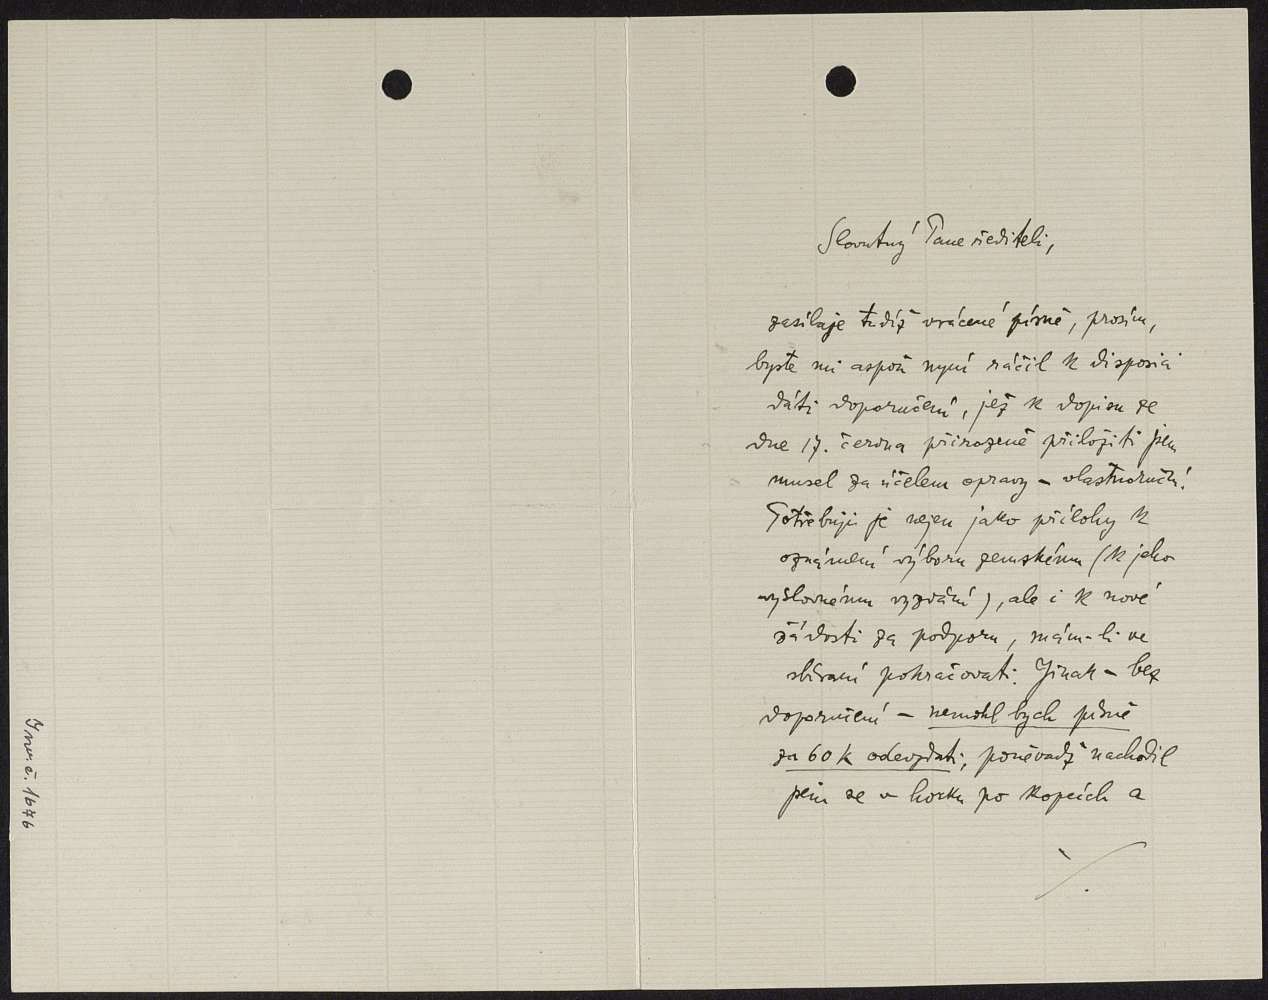 Inv. č. 1676
Slovutný Pane řediteli,
zasílaje tudíž vrácené písně, prosím,
byste mi aspoň nyní ráčil k disposici
dáti doporučení, jež k dopisu ze
dne 17. června přirozeně přiložiti jsem
musel za účelem opravy – vlastnoruční.
Potřebuji je nejen jako přílohy k
oznámení výboru zemskému (k jeho
výslovnému vyzvání), ale i k nové
žádosti za podporu, mám-li ve
sbírání pokračovati. Jinak – bez
doporučení – nemohl bych písně
za 60 K odevzdati, poněvadž nachodil
jsem se v horku po kopcích a
./.